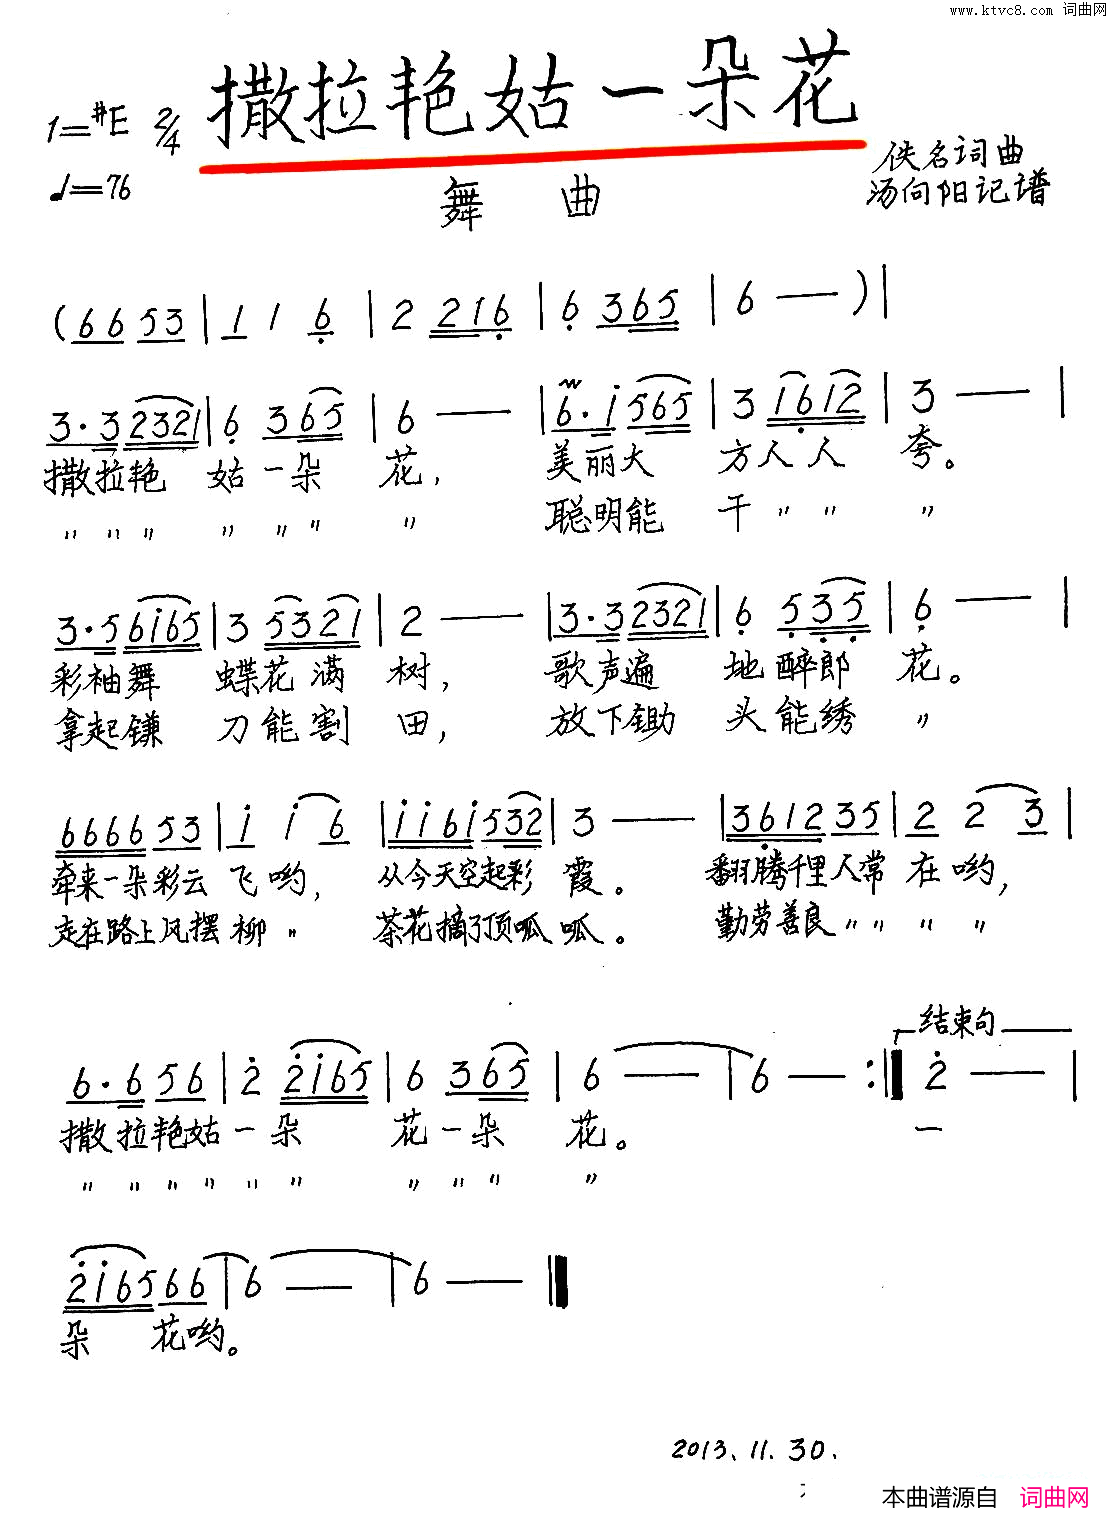 www.ktvc8.com 词曲网
撒拉艳姑一朵花
1=#E 2/4
♩=76
舞 曲
佚名词曲
汤向阳记谱
(6 6 5 3 | 1 1 6 | 2 2 1 6 | 6 3 6 5 | 6 — ) |
3 · 3 2 3 2 1 | 6 3 6 5 | 6 — | 6 · i 5 6 5 | 3 i 6 i 2 | 3 — |
撒拉艳 姑一朵 花, 美丽大 方人人 夸。
〃 〃 〃 〃 〃 〃 〃 聪明能 干 〃 〃 〃
3 · 5 6 i 6 5 | 3 5 3 2 1 | 2 — | 3 · 3 2 3 2 1 | 6 5 3 5 | 6 — |
彩袖舞 蝶花满 树, 歌声遍 地醉郎 花。
拿起镰 刀能割 田, 放下锄 头能绣 〃
6 6 6 6 5 3 | i i 6 | i i 6 i 5 3 2 | 3 — | 3 6 1 2 3 5 | 2 2 3 |
牵来一朵彩云 飞哟, 从今天空起彩 霞。 翻腾千里人常 在哟,
走在路上风摆 柳 〃 茶花摘了顶呱 呱。 勤劳善良 〃 〃 〃 〃
结束句
6 · 6 5 6 | 2 2 i 6 5 | 6 3 6 5 | 6 — | 6 — :‖ 2 — |
撒拉艳姑一朵 花一朵 花。 一
〃 〃 〃 〃 〃 〃 〃 〃 〃 〃
2 i 6 5 6 6 | 6 — | 6 — ‖
朵 花哟。
2013.11.30.
本曲谱源自 词曲网